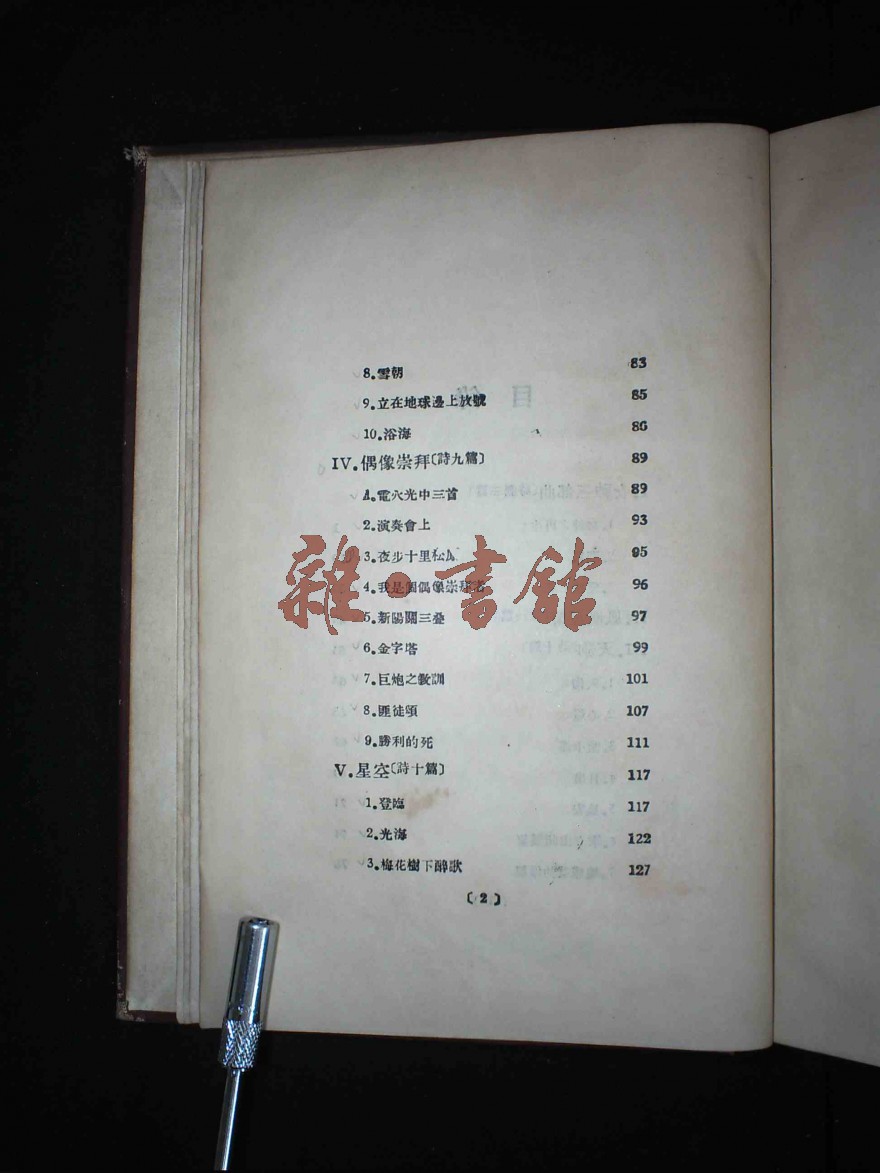 8.雪朝 83
9.立在地球邊上放號 85
10.浴海 86
IV.偶像崇拜〔詩九篇〕 89
1.電火光中三首 89
2.演奏會上 93
3.夜步十里松原 95
4.我是個偶像崇拜者 96
5.新陽關三叠 97
6.金字塔 99
7.巨炮之教訓 101
8.匪徒頌 107
9.勝利的死 111
V.星空〔詩十篇〕 117
1.登臨 117
2.光海 122
3.梅花樹下醉歌 127
〔2〕
雜·書館